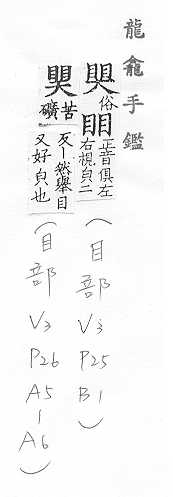 龍龕手鑑
俗䀠音俱左
右視皃二
（目部 V3 P25 B1）
苦礦
反丨然舉目
又好皃也
（目部 V3 P26 A5-A6）